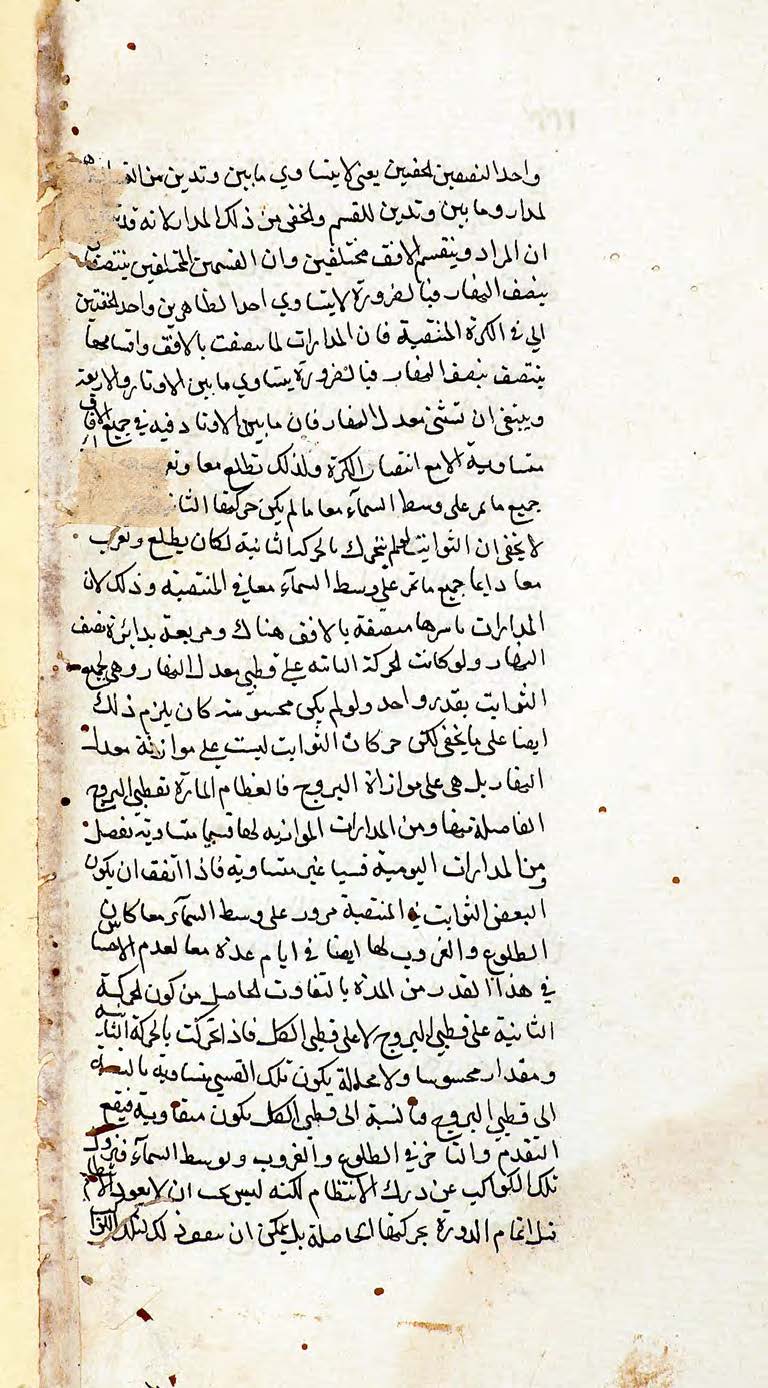 واحد النصفين الخفيين يعنى لا يتساوي ما بين وتدين من
لمدار وما بين وتدين للقسم الخفى من ذلك المدار لانه قد
ان المراد وينقسم الافق مختلفين وان القسمين المختلفين ينتصفان
بنصف النهار فبالضرورة لا يتساوي احد الظاهرين واحد الخفيين
الي فى الكرة المنتصبة فان المدارات لما ينصفت بالافق واقسامها
ينتصف بنصف النهار فبالضرورة يتساوي ما بين الاوتار والاربعة
وينبغى ان تستثنى معدل النهار فان ما بين الاوتاد فيه فى جميع الافاق
متساوية الا مع انتصاب الكرة ولذلك تطلع معا وتغ
جميع ما تمر على وسط السمآء معا ما لم يكن حركتها الثا
لا يخفى ان الثوابت لو لم يتحرك بالحركة الثانية لكان يطلع وتغرب
معا دايما جميع ما تمر على وسط السمآء معا فى المنتصبة وذلك لان
المدارات باسرها منصفة بالافق هناك ومربعة بدائرة نصف
النهار ولو كانت الحركة الثانية على قطبى معدل النهار وهى لجميع
الثوابت بقدر واحد ولو لم يكن محسوسة كان يلزم ذلك
ايضا على ما يخفى لكن حركات الثوابت ليست على موازنة معدل
النهار بل هى على موازاة البروج فالعظام المارة بقطبى البروج
الفاصلة منها ومن المدارات الموازيه لها قسيا متساوية تفصل
من المدارات اليومية قسيا غير متساوية فاذا اتفق ان يكون
البعض الثوابت فى المنتصبة مرور على وسط السمآء معا كان
الطلوع والغروب لها ايضا فى ايام عدة معا لعدم الاحساس
فى هذا القدر من المدة بالتفاوت الحاصل من كون الحركة
الثانية على قطبى البروج لا على قطبى الكل فاذا تحركت بالحركة الثانية
ومقدار محسوسا ولا محالة يكون تلك القسى متساوية بالنسبة
الى قطبى البروج وبالنسبة الى قطبى الكل يكون متفاوتة فيقع
التقدم والتاخر فى الطلوع والغروب وتوسط السمآء فيزول
تلك الكواكب عن درك الانتظام لكنه ليس يجب ان لا يعود الانتظام
قبل اتمام الدورة بحركتها الحاصلة بل يمكن ان يعود ذلك لتلك الكواكب